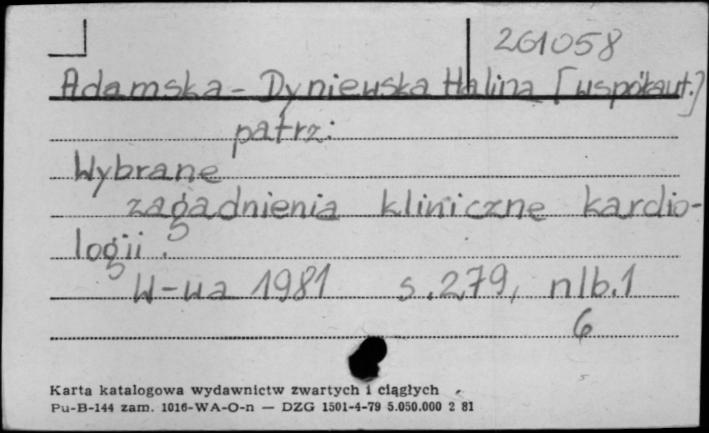 201058
Adamska-Dyniewska Halina [współaut.]
patrz:
Wybrane
zagadnienia kliniczne kardio-
logii.
W-wa 1981 s.279, nlb.1
6
Karta katalogowa wydawnictw zwartych i ciągłych
Pu-B-144 zam. 1016-WA-O-n — DZG 1501-4-79 5.050.000 2 81